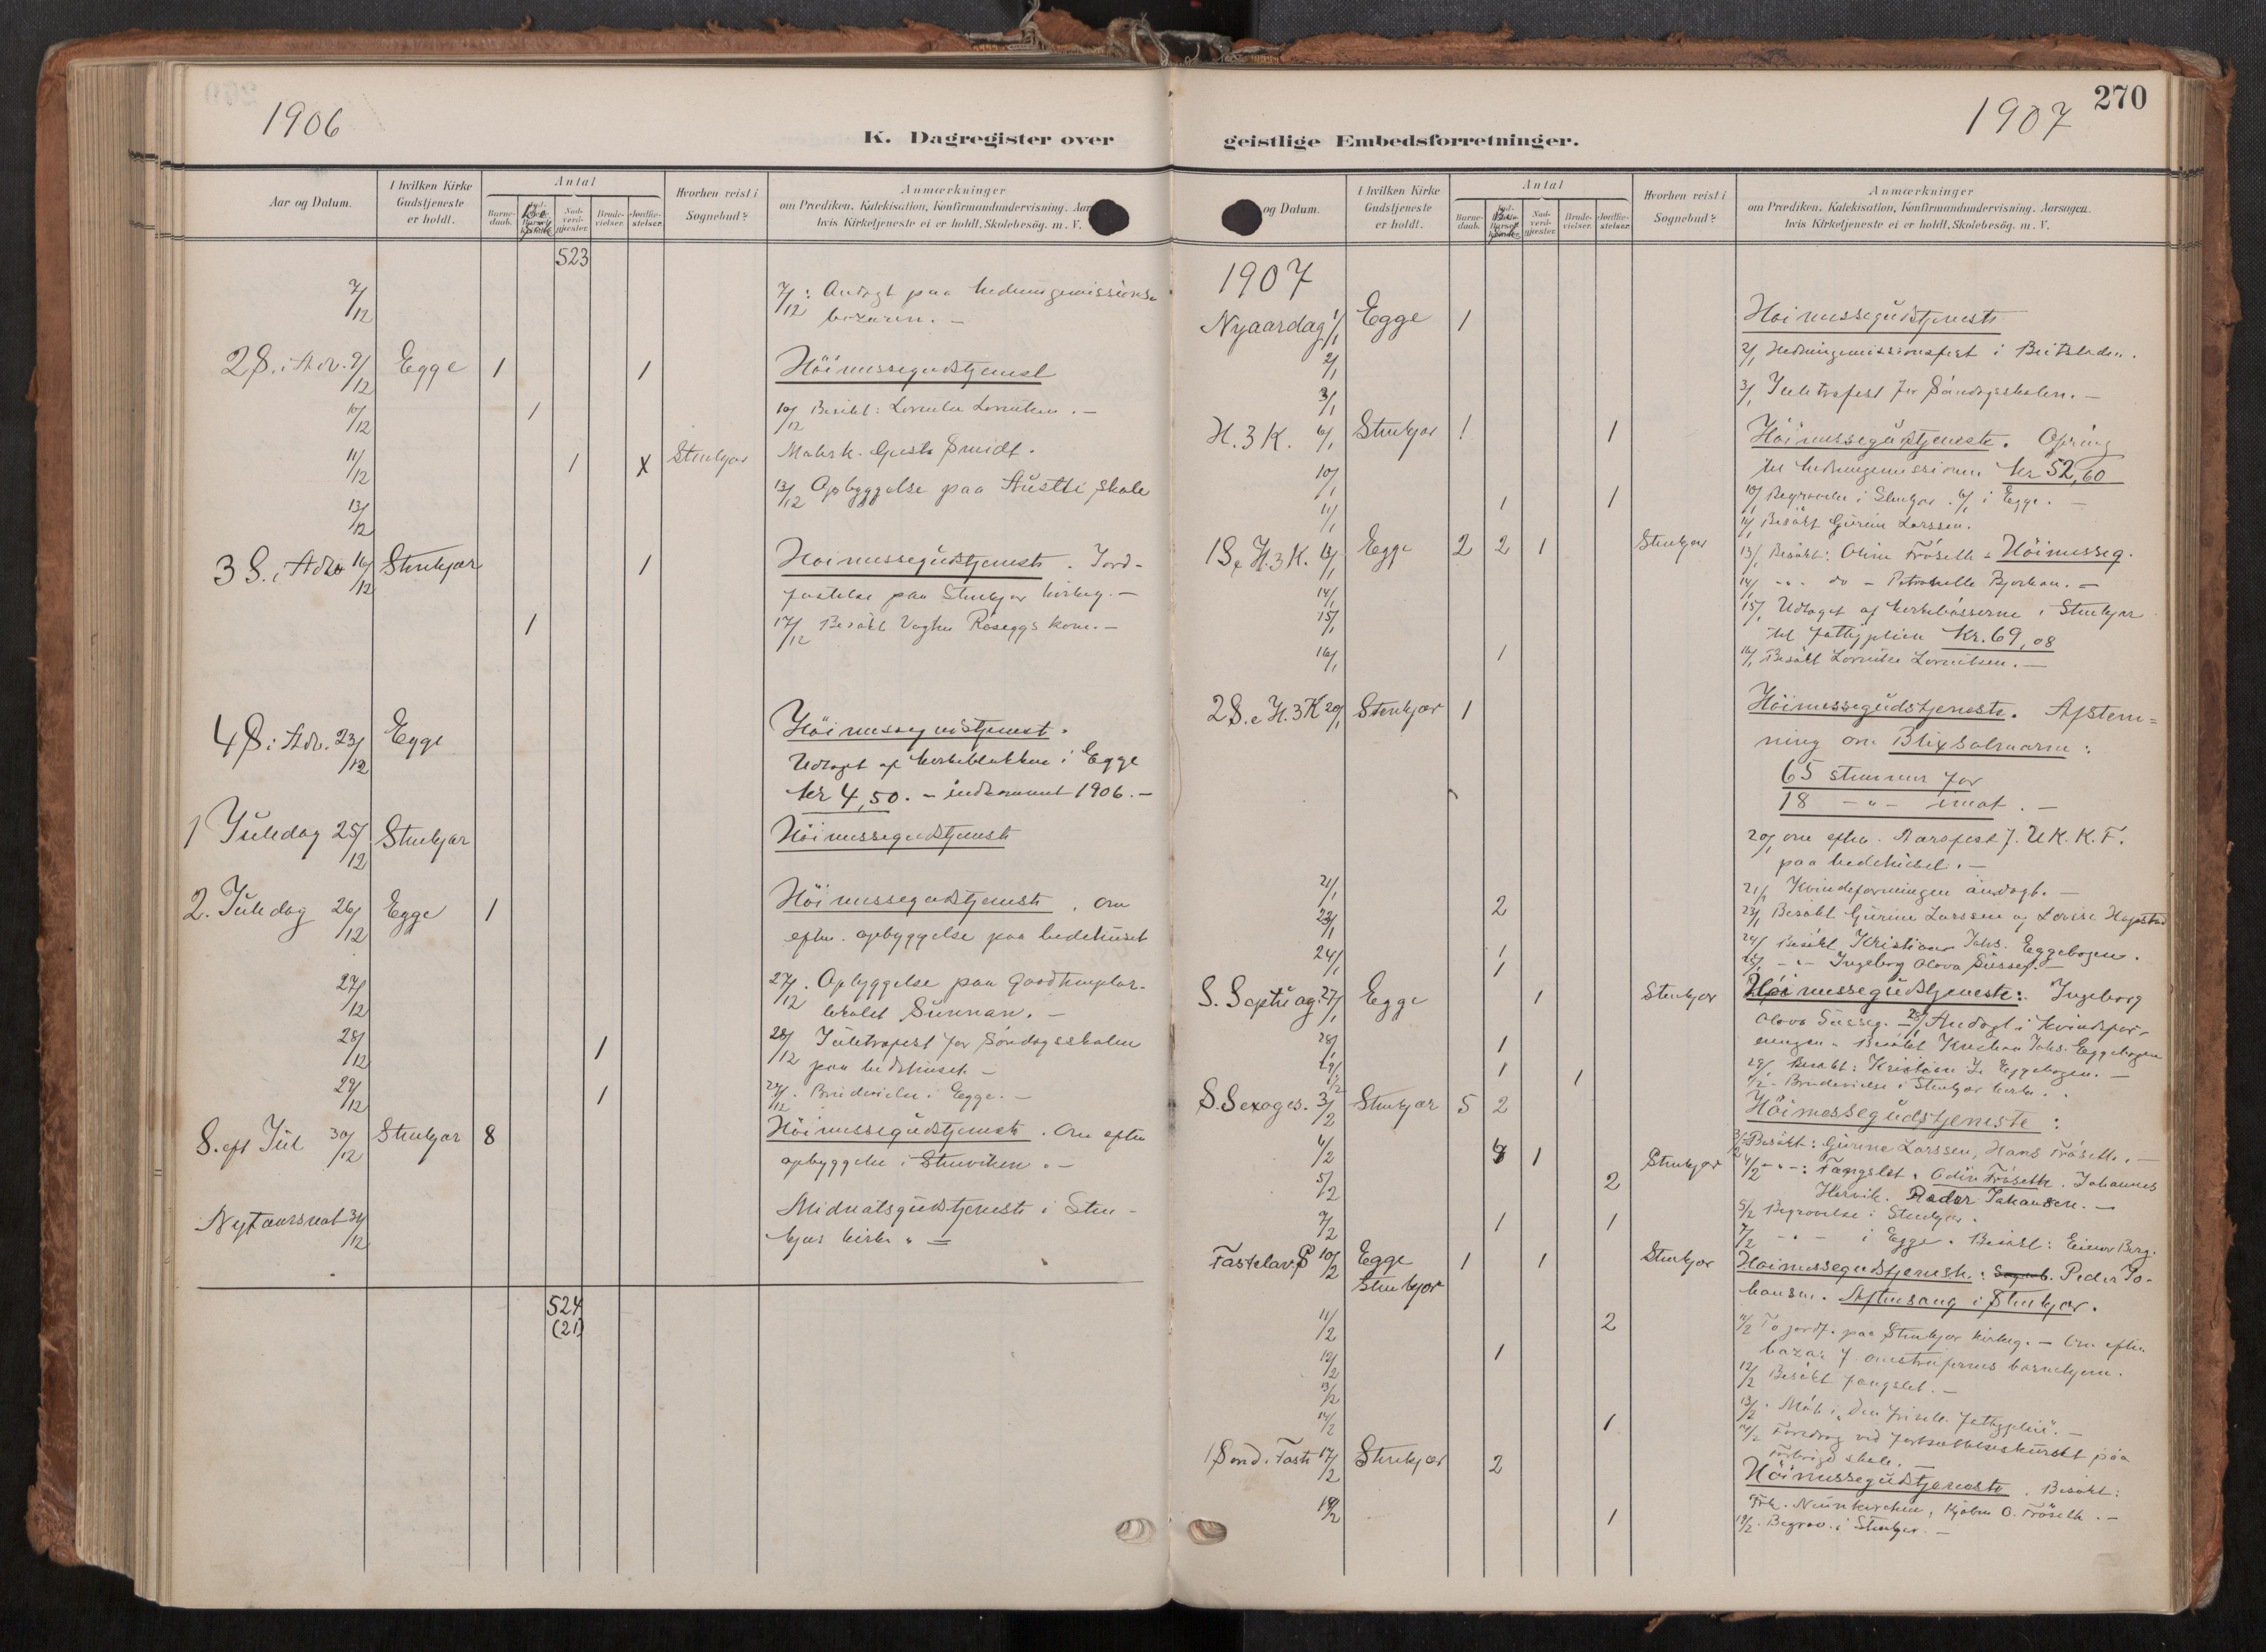 1906
K. Dagregister over
Aar og Datum.
I hvilken Kirke Gudstjeneste er holdt.
Antal
Barne-daab.
Nad-verd-gjæster.
Brude-vielser.
Jordfæ-stelser.
Hvorhen reist i Sognebud?
Anmærkninger
om Prædiken, Katekisation, Konfirmandundervisning. Aar
hvis Kirketjeneste ei er holdt, Skolebesøg. m. V.
523
7/12 7/12: Andagt paa hedningemissions-
bazaren. -
2 S. i Adv. 9/12 Egge 1 1 Höimessegudstjenest
10/12 1 10/12 Besökt: Lornitse Lornitsen. -
11/12 1 x Stenkjær
13/12 13/12 Opbyggelse paa skole
3 S. i Adv 16/12 Stenkjær 1 Høimessegudstjeneste. Jord-
fæstelse paa Stenkjær kirkeg. -
1 17/12 Besökt kone. -
4 S. i Adv. 23/12 Egge Höimessegudstjenest.
Udtaget af kirkeblokken i Egge
kr 4,50. - indkommet 1906. -
1 Juledag 25/12 Stenkjær Höimessegudstjeneste
2. Juledag 26/12 Egge 1 Höimessegudstjeneste. Om
eftm. opbyggelse paa bedehuset
27/12 27/12. Opbyggelse paa Goodtemplar-
lokalet Sunnan. -
28/12 1 28/12 Juletræfest for Söndagsskolen
paa bedehuset -
29/12 1 29/12. Brudevielse i Egge. -
S. eft Jul 30/12 Stenkjær 8 Höimessegudstjeneste. Om eftm
opbyggelse i Stenviken. -
Nytaarsnat 31/12 Midnatsgudstjeneste i Sten-
kjær kirke. =
524
(21)
270
1907
geistlige Embedsforretninger.
og Datum.
I hvilken Kirke Gudstjeneste er holdt.
Antal
Barne-daab.
Nad-verd-gjæster.
Brude-vielser.
Jordfæ-stelser.
Hvorhen reist i Sognebud?
Anmærkninger
om Prædiken, Katekisation, Konfirmandundervisning. Aarsagen,
hvis Kirketjeneste ei er holdt, Skolebesøg. m. V.
1907
Nyaarsdag 1/1 Egge 1 Höimessegudstjeneste
2/1 2/1 Hedningemissionsfest i Beitstaden.
3/1 3/1 Juletræfest for Søndagsskolen. -
H. 3 K. 6/1 Stenkjær 1 1 Höimessegudstjeneste. Ofring
til hedningemissionen kr 52,60
10/1 1 10/1 Begravelse i Stenkjær. i Egge. -
11/1 1 11/1 Besökt Gurine Larssen.
1 S e H. 3 K. 13/1 Egge 2 2 1 Stenkjær 13/1 Besökt: Oline Fröseth. Höimesseg.
14/1 14/1 -"- do - Petronelle Bjerkan. =
15/1 15/1 Udtaget af kirkebøsserne i Stenkjær
til fattigpleien Kr. 69,08
16/1 1 16/1 Besökt Lornitse Lornitsen. -
2 S. e H. 3 K 20/1 Stenkjær 1 Höimessegudstjeneste. Afstem=
ning om Blixsalmerne:
65 stemmer for
18 -"- imot. -
20/1 om eftm. Aarsfest f. U.K.K.F.
paa bedehuset. -
21/1 21/1 Kvindeforeningen andagt. -
23/1 2 23/1 Besökt Gurine Larssen og Lovise
24/1 1 24/1 Besökt Kristian Johs. Eggebogen.
1 -"- Ingeborg Olova
S. Septuag. 27/1 Egge 1 Stenkjær Höimessegudstjeneste: Ingeborg
Olova 28/1 Andagt i kvindefor-
28/1 1 eningen. Besökt Kristian Johs. Eggebogen
29/1 1 29/1 Besökt: Kristian Js Eggebogen. -
1/2 1 1/2 - Brudevielse i Stenkjær kirke.
S. Sexages. 3/2 Stenkjær 5 2 Höimessegudstjeneste:
3/2 Besökt: Gurine Larssen, Hans Fröseth. -
4/2 1 Stenkjær 4/2 -"-: Fængslet. Odin Fröseth. Johannes
Hervik. Peder Johansen. -
5/2 2 5/2 Begravelse i Stenkjær.
7/2 1 1 7/2 -"- i Egge. Besökt: Einar Berg.
Fastelav. S 10/2 Egge 1 1 Stenkjær Höimessegudstjeneste: Peder Jo-
Stenkjær hansen. Aftensang i Stenkjær.
11/2 2 11/2 To jordf. paa Stenkjær kirkeg. - Om eftm
bazar f. barnehjem.
12/2 1 12/2 Besökt fængslet. -
13/2 13/2. Möte i "Den frivill. fattigpleie". -
14/2 1 14/2 Foredrag ved fortsættelseskurset paa
skole. -
1 Sönd. i Faste 17/2 Stenkjær 2 Höimessegudstjeneste. Besökt:
Frk. Neunkirchen, O. Fröseth. -
19/2 1 19/2. Begrav. i Stenkjær. -